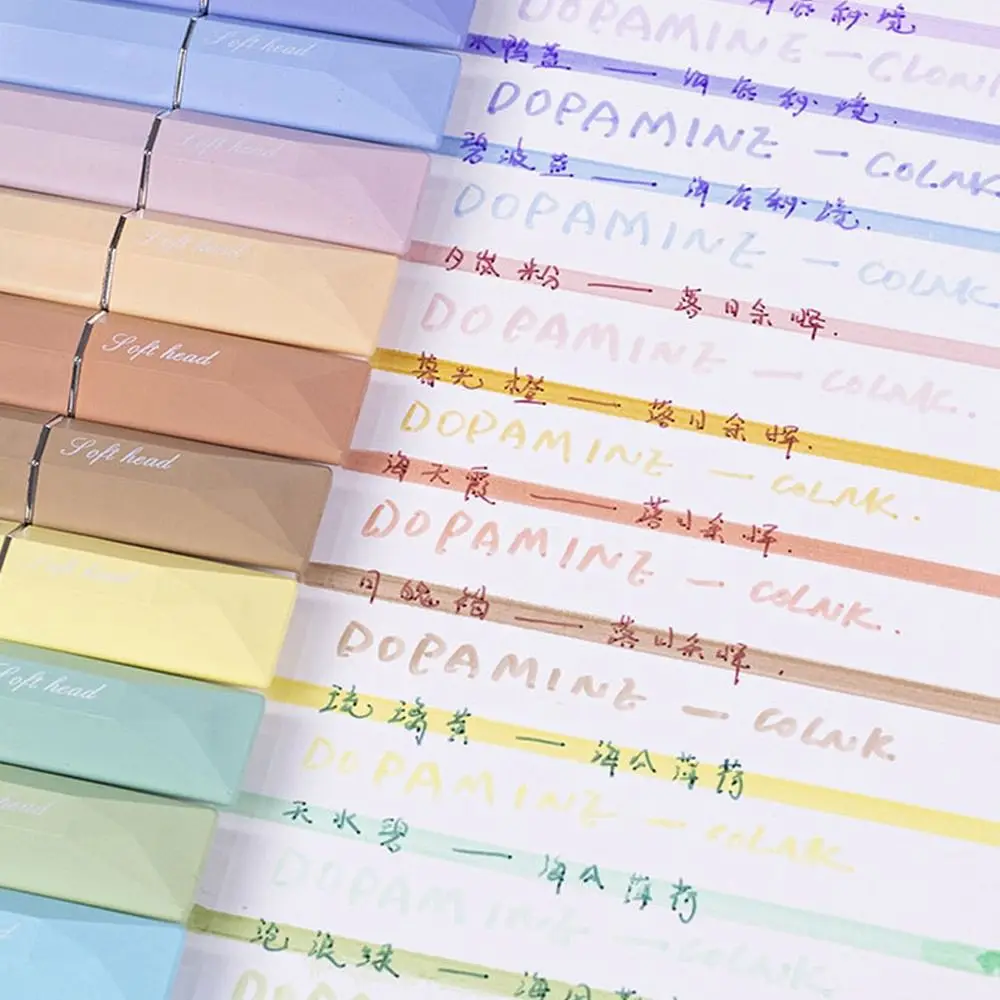 DOPAMINE — CLONK
水鸭蓝 — 海底秘境.
Soft head
DOPAMINE — COLNK
碧波蓝 — 海底秘境.
Soft head
DOPAMINE — COLNK
夕岚粉 — 落日余晖.
Soft head
DOPAMINE — COLNK.
暮光橙 — 落日余晖.
Soft head
DOPAMINE — COLNK.
海天霞 — 落日余晖.
Soft head
DOPAMINE — COLNK.
月魄褐 — 落日余晖.
Soft head
DOPAMINE — COLNK.
琉璃黄 — 海盐薄荷
Soft head
DOPAMINE — COLNK
天水碧 — 海盐薄荷
DOPAMINE — COLNK.
泡浪绿 —
DOPAMINE